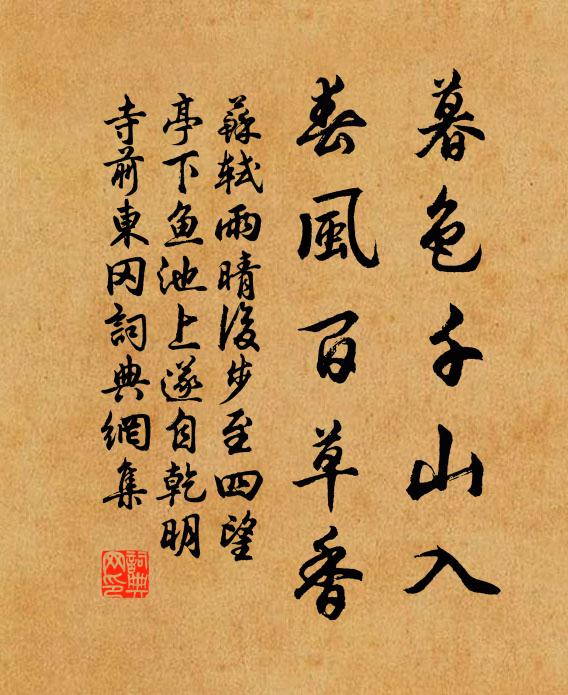 暮色千山入
春風百草香
蘇軾雨晴後步至四望
亭下魚池上遂自乾明
寺前東冈詞典網集
詞典网印